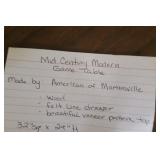 Mid Century Modern
Game Table
Made by: American of Martinsville
- wood
- felt line drawer
- beautiful veneer pattern top
32.3sq x 29"H